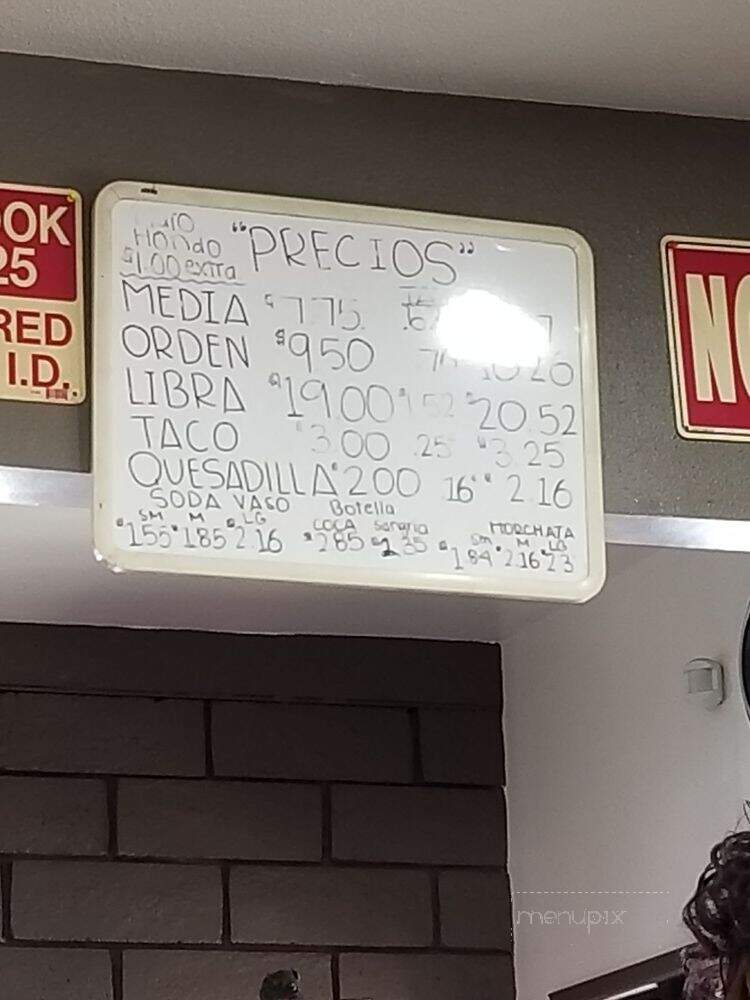 OOK
25
RED
I.D.
Hondo
$1.00 extra
"PRECIOS"
MEDIA $7.75
ORDEN $9.50
LIBRA $19.00 1.52 $20.52
TACO $3.00 .25 $3.25
QUESADILLA $2.00 16 2.16
SODA VASO
SM M LG
$1.55 $1.85 $2.16
Botella
COCA Sangria
$2.85
MORCHATA
SM M LG
$1.84 $2.16 $2.3
NO
menupix